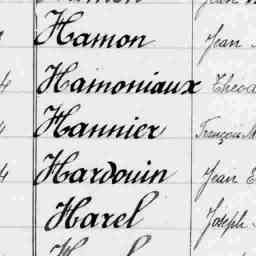 Hamon Jean
4 Hamoniaux
Hannier François
4 Hardouin Jean
Harel Joseph